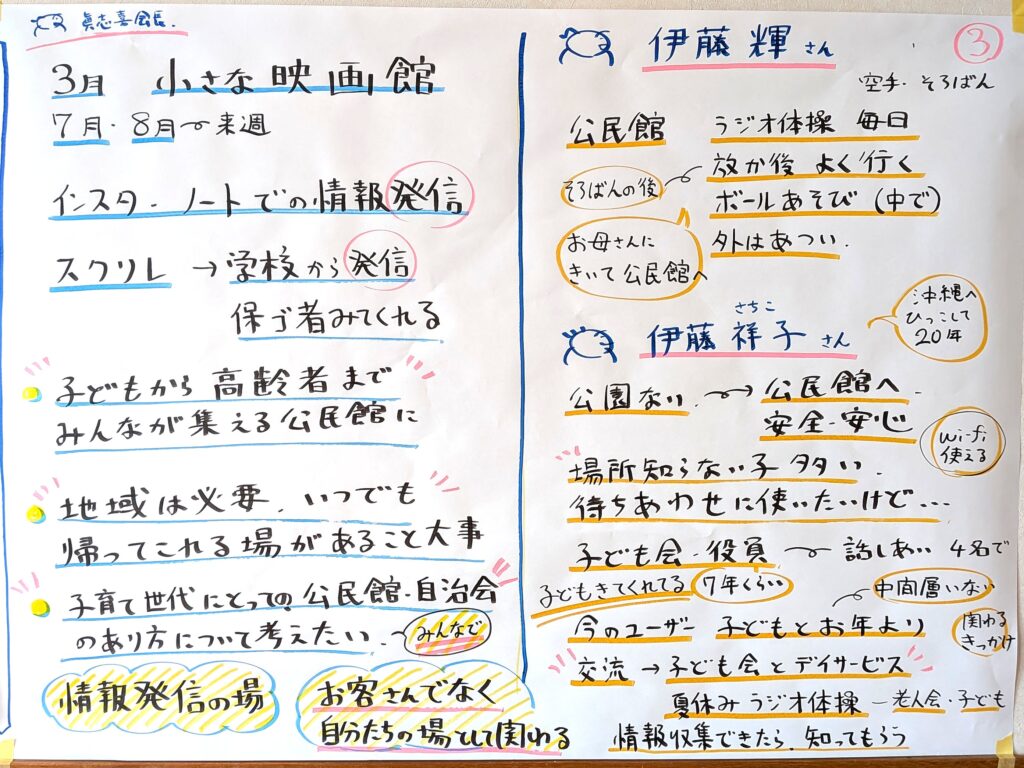 眞志喜会長.
3月 小さな映画館
7月・8月〜来週
インスタ・ノートでの情報発信
スクリレ → 学校から発信
保ゴ者みてくれる
子どもから高齢者まで
みんなが集える公民館に
地域は必要、いつでも
帰ってこれる場があること大事
子育て世代にとっての公民館・自治会
のあり方について考えたい.〜みんなで
情報発信の場
お客さんでなく
自分たちの場として関わる
③
伊藤輝さん
空手・そろばん
公民館 ラジオ体操 毎日
放か後 よく行く
そろばんの後
ボールあそび(中で)
外はあつい.
お母さんに
きいて公民館へ
さちこ
伊藤祥子さん
沖縄へ
ひっこして
20年
公園ない. 〜→ 公民館へ.
安全・安心
Wi-fi
使える
場所知らない子 多い.
待ちあわせに使いたいけど…
子ども会・役員 〜 話しあい 4名で
子どもきてくれてる 7年くらい 中間層いない
今のユーザー 子どもとお年より
関わる
きっかけ
交流 → 子ども会とデイサービス
夏休み ラジオ体操 ー 老人会・子ども
情報収集できたら、知ってもらう